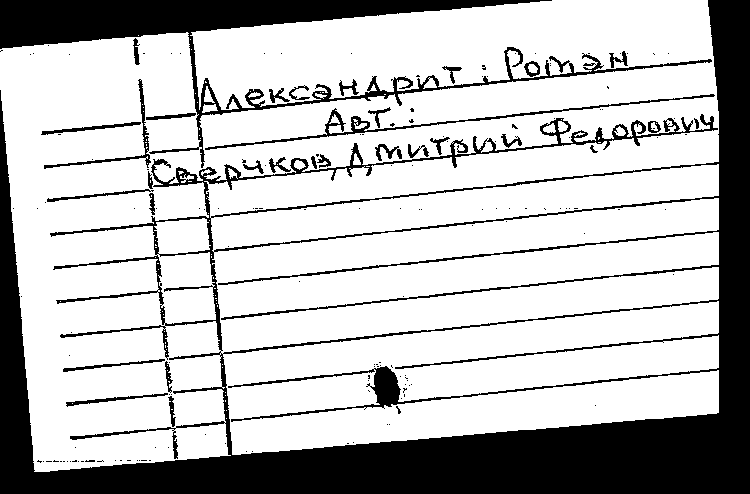 Александрит : Роман
Авт. :
Сверчков, Дмитрий Федорович